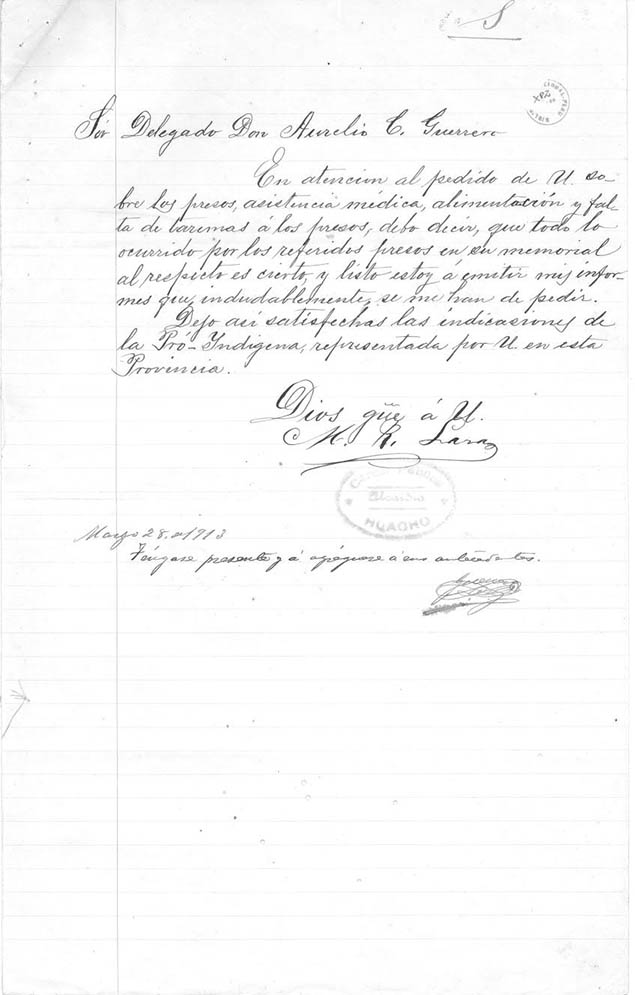 5
Sor Delegado Don Aurelio C. Guerrero
En atencion al pedido de U. so-
bre los presos, asistencia médica, alimentación y fal-
ta de taremas á los presos, debo decir, que todo lo
ocurrido por los referidos presos en su memorial
al respecto es cierto, y listo estoy a emitir mis infor-
mes que, indudablemente, se me han de pedir.
Dejo asi satisfechas las indicasiones de
la Pró-Indígena, representada por U. en esta
Provincia.
Dios güe á U.
M. R. Lara
Alcaidia
HUACHO
Marzo 28. o 1913
Téngase presente y á agréguese á sus antecedentes.